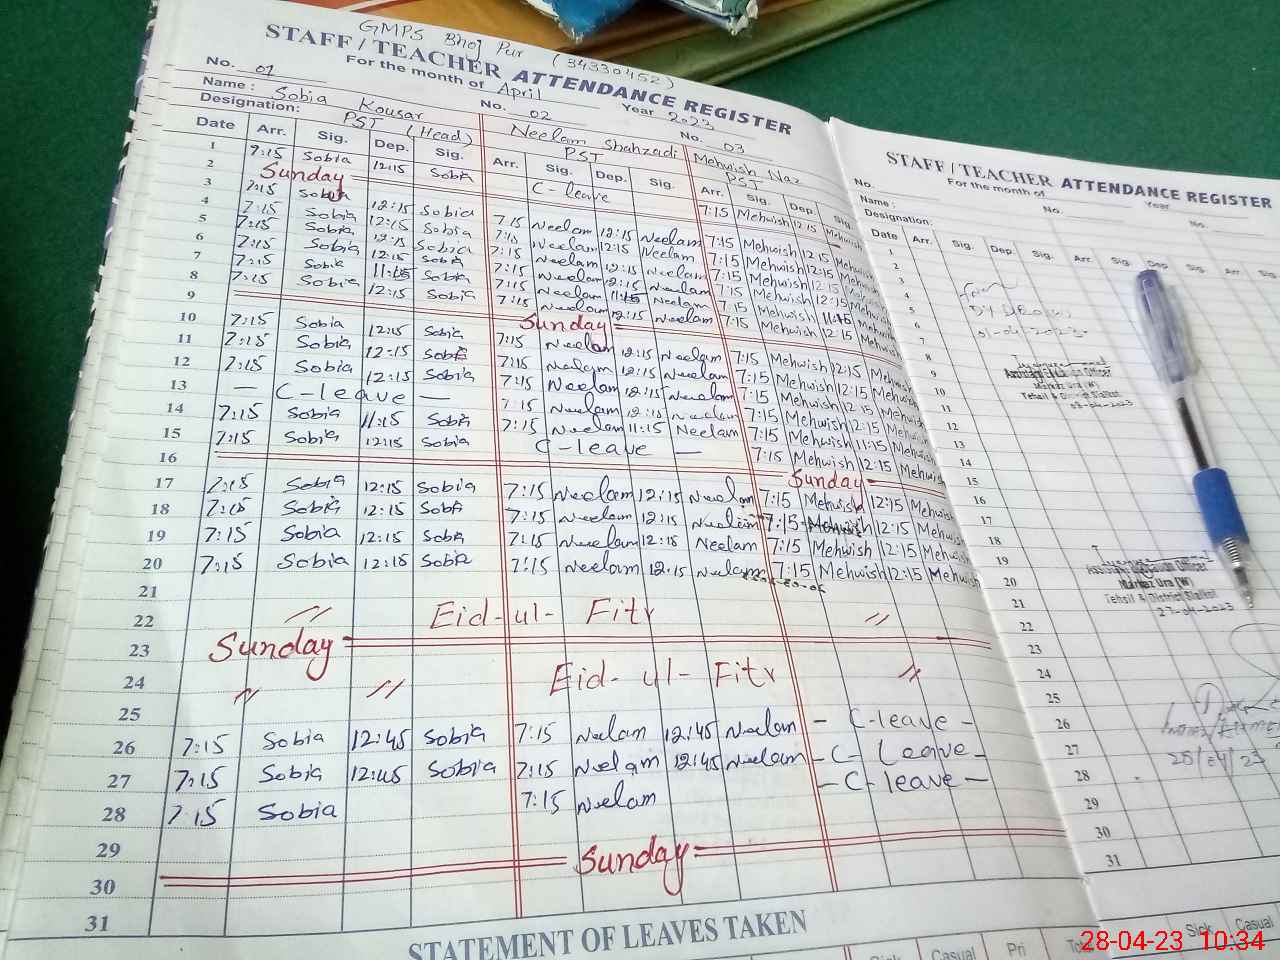 GMPS Bhoj Pur (34330452)
STAFF / TEACHER ATTENDANCE REGISTER
For the month of April Year 2023
No. 01 No. 02 No. 03
Name: Sobia Kousar Neelam Shahzadi Mehwish Naz
Designation: PST (Head) PST PST
Date Arr. Sig. Dep. Sig. Arr. Sig. Dep. Sig. Arr. Sig. Dep. Sig.
1 7:15 Sobia 12:15 Sobia C-leave 7:15 Mehwish 12:15 Mehwish
2 Sunday
3 7:15 Sobia 12:15 Sobia 7:15 Neelam 12:15 Neelam 7:15 Mehwish 12:15 Mehwish
4 7:15 Sobia 12:15 Sobia 7:15 Neelam 12:15 Neelam 7:15 Mehwish 12:15 Mehwish
5 7:15 Sobia 12:15 Sobia 7:15 Neelam 12:15 Neelam 7:15 Mehwish 12:15 Mehwish
6 7:15 Sobia 12:15 Sobia 7:15 Neelam 12:15 Neelam 7:15 Mehwish 12:15 Mehwish
7 7:15 Sobia 11:15 Sobia 7:15 Neelam 11:15 Neelam 7:15 Mehwish 11:15 Mehwish
8 7:15 Sobia 12:15 Sobia 7:15 Neelam 12:15 Neelam 7:15 Mehwish 12:15 Mehwish
9 Sunday
10 7:15 Sobia 12:15 Sobia 7:15 Neelam 12:15 Neelam 7:15 Mehwish 12:15 Mehwish
11 7:15 Sobia 12:15 Sobia 7:15 Neelam 12:15 Neelam 7:15 Mehwish 12:15 Mehwish
12 7:15 Sobia 12:15 Sobia 7:15 Neelam 12:15 Neelam 7:15 Mehwish 12:15 Mehwish
13 — C-leave — 7:15 Neelam 12:15 Neelam 7:15 Mehwish 12:15 Mehwish
14 7:15 Sobia 11:15 Sobia 7:15 Neelam 11:15 Neelam 7:15 Mehwish 11:15 Mehwish
15 7:15 Sobia 12:15 Sobia C-leave — 7:15 Mehwish 12:15 Mehwish
16 Sunday
17 7:15 Sobia 12:15 Sobia 7:15 Neelam 12:15 Neelam 7:15 Mehwish 12:15 Mehwish
18 7:15 Sobia 12:15 Sobia 7:15 Neelam 12:15 Neelam 7:15 Mehwish 12:15 Mehwish
19 7:15 Sobia 12:15 Sobia 7:15 Neelam 12:15 Neelam 7:15 Mehwish 12:15 Mehwish
20 7:15 Sobia 12:15 Sobia 7:15 Neelam 12:15 Neelam 7:15 Mehwish 12:15 Mehwish
21
22 〃 Eid-ul-Fitr 〃
23 Sunday
24 〃 〃 Eid-ul-Fitr 〃
25
26 7:15 Sobia 12:45 Sobia 7:15 Neelam 12:45 Neelam - C-leave -
27 7:15 Sobia 12:45 Sobia 7:15 Neelam 12:45 Neelam - C Leave -
28 7:15 Sobia 7:15 Neelam - C-leave -
29
30 Sunday
31
STATEMENT OF LEAVES TAKEN
STAFF / TEACHER ATTENDANCE REGISTER
For the month of Year
No. No. No.
Name:
Designation:
Date Arr. Sig. Dep. Sig. Arr. Sig. Dep. Sig. Arr. Sig.
1
2
3
4
5
6
7
8
9
10
11
12
13
14
15
16
17
18
19
20
21
22
23
24
25
26
27
28
29
30
31
Tehsil & District Sialkot
Markaz Ura (W)
Tehsil & District Sialkot
27-04-2023
Casual Pri Sick Casual
28-04-23 10:34